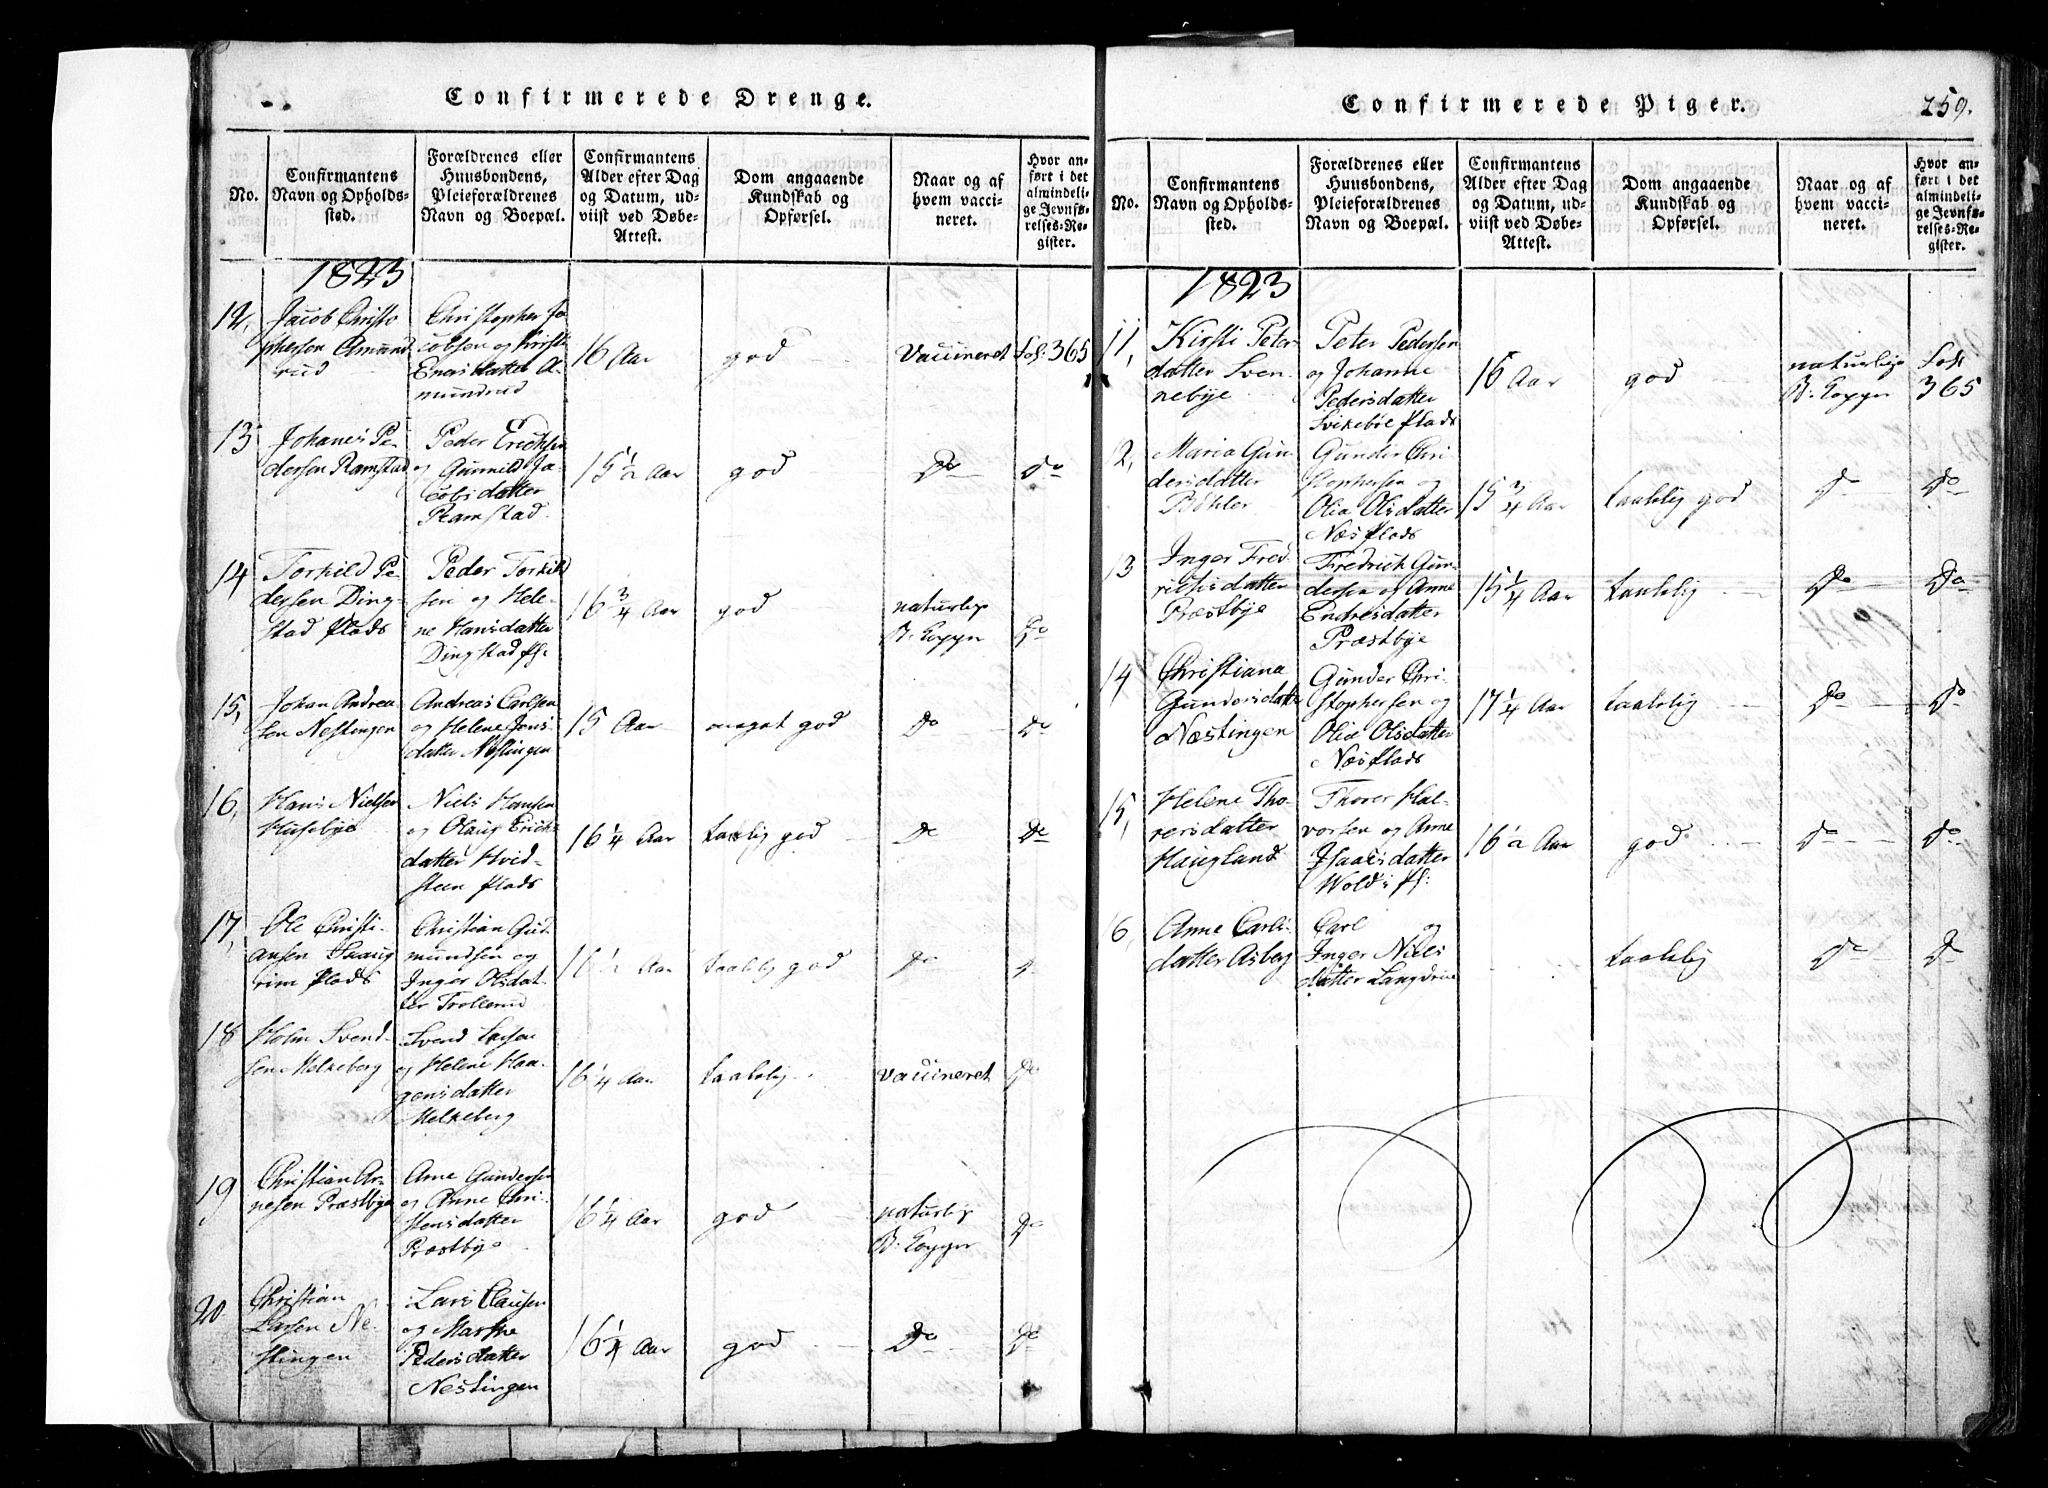 Confirmerede Drenge.
No.
Confirmantens
Navn og Opholds-
sted.
Forældrenes eller
Huusbondens,
Pleieforældrenes
Navn og Boepæl.
Confirmantens
Alder efter Dag
og Datum, ud-
viist ved Døbe-
Attest.
Dom angaaende
Kundskab og
Opførsel.
Naar og af
hvem vacci-
neret.
Hvor an-
ført i det
almindeli-
ge Jevnfø-
relses-Re-
gister.
1823
12,
Jacob Christo
phersen Amund
rud
Christopher Ja
cobsen og Kirsti
Enersdatter A-
mundrud
16 Aar
god
Vaccineret
Fol: 365
13
Johanes Pe-
dersen Ramstad
Peder Erichsen
og Gunnild Ja-
cobsdatter
Ramstad
15 1/2 Aar
god
Do
Do
14
Torkild Pe-
dersen Ding-
stad Plads
Peder Torkild
sen og Hele-
ne Hansdatter
Dingstad Pl:
16 3/4 Aar
god
naturlige
B. Copper
Do
15,
Johan Andrea
sen Nestingen
Andreas Carlsen
og Helene Jens
datter Nestingen
15 Aar
meget god
Do
Do
16,
Hans Nielsen
Husebye
Niels Hansen
og Olaug Erich-
datter Hvid-
steen Plads
16 1/4 Aar
taalelig god
Do
Do
17,
Ole Christi-
ansen Skaug
rim Plads
Christian Gud
mundsen og
Inger Olsdat-
ter Trollerud
16 1/2 Aar
taalelig god
Do
Do
18
Holm Svend-
sen Melkeberg
Svend Larsen
og Helene Haa-
gensdatter
Melkeberg
16 1/4 Aar
taalelig
Vaccineret
Do
19
Christian Ar-
nesen Præstbye
Arne Gundersen
og Anne Chri-
stensdatter
Præstbye
16 1/4 Aar
god
naturlige
B. Copper
Do
20
Christian
Larsen Ne-
stingen
Lars Clausen
og Marthe
Pedersdatter
Nestingen
16 1/4 Aar
god
Do
Do
Confirmerede Piger.
259.
No.
Confirmantens
Navn og Opholds-
sted.
Forældrenes eller
Huusbondens,
Pleieforældrenes
Navn og Boepæl.
Confirmantens
Alder efter Dag
og Datum, ud-
viist ved Døbe-
Attest.
Dom angaaende
Kundskab og
Opførsel.
Naar og af
hvem vacci-
neret.
Hvor an-
ført i det
almindeli-
ge Jevnfø-
relses-Re-
gister.
1823
11,
Kirsti Peter-
datter Sven-
nebye
Peter Pedersen
og Johanne
Pedersdatter
Svikebøe Plads
16 Aar
god
naturlige
B. Copper
Fol
365
12,
Maria Gun
dersdatter
Bøhler
Gunder Chri-
stophersen og
Olia Olsdatter
Næs Plads
15 3/4 Aar
taalelig god
Do
Do
13
Inger Fred-
richsdatter
Præstbye
Fredrich Gun-
dersen og Anne
Endresdatter
Præstbye
15 1/4 Aar
taalelig
Do
Do
14
Christiana
Gundersdatter
Næstingen
Gunder Chri-
stophersen og
Olia Olsdatter
Næs Plads
17 1/4 Aar
taalelig
Do
Do
15,
Helene Tho-
rersdatter
Haugland
Thorer Hal-
vorsen og Anne
Isaacsdatter
Wold's Pl:
16 1/2 Aar
god
Do
Do
16,
Anne Carls-
datter Asberg
Carl og
Inger Niels
datter
taalelig
Do
Do